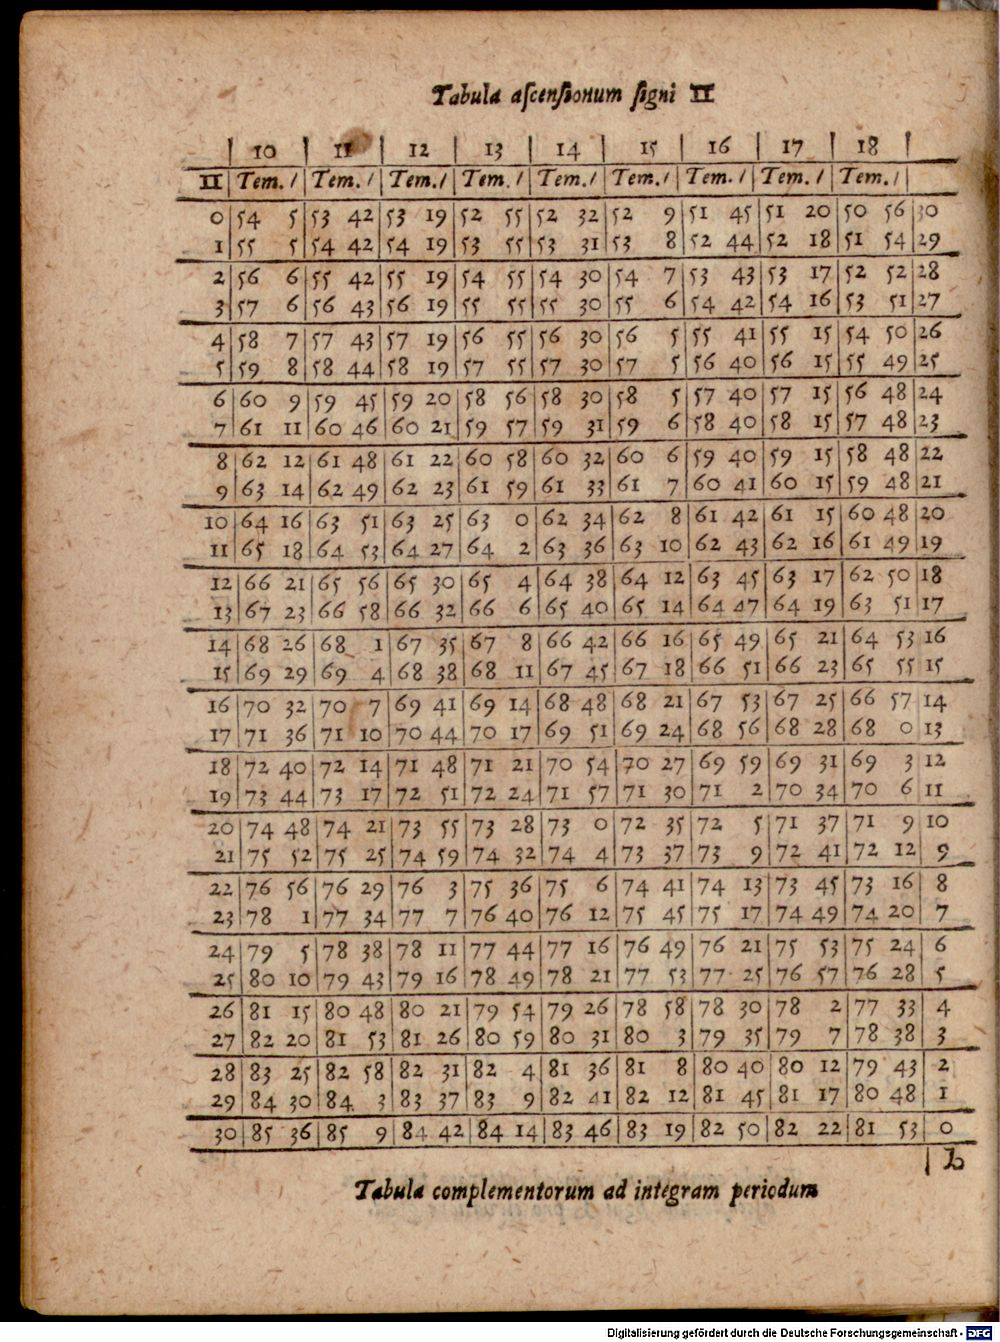 Tabula aſcenſionum ſigni ♊
10 11 12 13 14 15 16 17 18
♊ Tem. / Tem. / Tem. / Tem. / Tem. / Tem. / Tem. / Tem. / Tem. /
0 54 5 53 42 53 19 52 55 52 32 52 9 51 45 51 20 50 56 30
1 55 5 54 42 54 19 53 55 53 31 53 8 52 44 52 18 51 54 29
2 56 6 55 42 55 19 54 55 54 30 54 7 53 43 53 17 52 52 28
3 57 6 56 43 56 19 55 55 55 30 55 6 54 42 54 16 53 51 27
4 58 7 57 43 57 19 56 55 56 30 56 5 55 41 55 15 54 50 26
5 59 8 58 44 58 19 57 55 57 30 57 5 56 40 56 15 55 49 25
6 60 9 59 45 59 20 58 56 58 30 58 5 57 40 57 15 56 48 24
7 61 11 60 46 60 21 59 57 59 31 59 6 58 40 58 15 57 48 23
8 62 12 61 48 61 22 60 58 60 32 60 6 59 40 59 15 58 48 22
9 63 14 62 49 62 23 61 59 61 33 61 7 60 41 60 15 59 48 21
10 64 16 63 51 63 25 63 0 62 34 62 8 61 42 61 15 60 48 20
11 65 18 64 53 64 27 64 2 63 36 63 10 62 43 62 16 61 49 19
12 66 21 65 56 65 30 65 4 64 38 64 12 63 45 63 17 62 50 18
13 67 23 66 58 66 32 66 6 65 40 65 14 64 47 64 19 63 51 17
14 68 26 68 1 67 35 67 8 66 42 66 16 65 49 65 21 64 53 16
15 69 29 69 4 68 38 68 11 67 45 67 18 66 51 66 23 65 55 15
16 70 32 70 7 69 41 69 14 68 48 68 21 67 53 67 25 66 57 14
17 71 36 71 10 70 44 70 17 69 51 69 24 68 56 68 28 68 0 13
18 72 40 72 14 71 48 71 21 70 54 70 27 69 59 69 31 69 3 12
19 73 44 73 17 72 51 72 24 71 57 71 30 71 2 70 34 70 6 11
20 74 48 74 21 73 55 73 28 73 0 72 35 72 5 71 37 71 9 10
21 75 52 75 25 74 59 74 32 74 4 73 37 73 9 72 41 72 12 9
22 76 56 76 29 76 3 75 36 75 6 74 41 74 13 73 45 73 16 8
23 78 1 77 34 77 7 76 40 76 12 75 45 75 17 74 49 74 20 7
24 79 5 78 38 78 11 77 44 77 16 76 49 76 21 75 53 75 24 6
25 80 10 79 43 79 16 78 49 78 21 77 53 77 25 76 57 76 28 5
26 81 15 80 48 80 21 79 54 79 26 78 58 78 30 78 2 77 33 4
27 82 20 81 53 81 26 80 59 80 31 80 3 79 35 79 7 78 38 3
28 83 25 82 58 82 31 82 4 81 36 81 8 80 40 80 12 79 43 2
29 84 30 84 3 83 37 83 9 82 41 82 12 81 45 81 17 80 48 1
30 85 36 85 9 84 42 84 14 83 46 83 19 82 50 82 22 81 53 0
♑
Tabula complementorum ad integram periodum
Digitalisierung gefördert durch die Deutsche Forschungsgemeinschaft - DFG